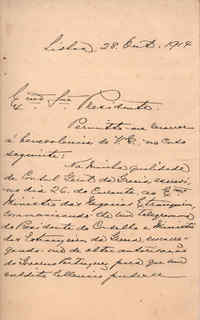 Lisboa, 28. Out. 1914
Exmo. Snr. Presidente
Permitta-me recorrer
á benevolencia de V. Ex. no caso
seguinte:
Na minha qualidade
de Consul Geral da Grecia, escrevi,
no dia 26. do corrente, ao Exmo.
Ministro dos Negocios Estrangeiros,
communicando-lhe um telegramma
do Presidente do Conselho e Ministro
dos Estrangeiros da Grecia, encarre-
gando-me de obter autorisação
do Governo Portuguez, para que um
subdito Hellenico podesse